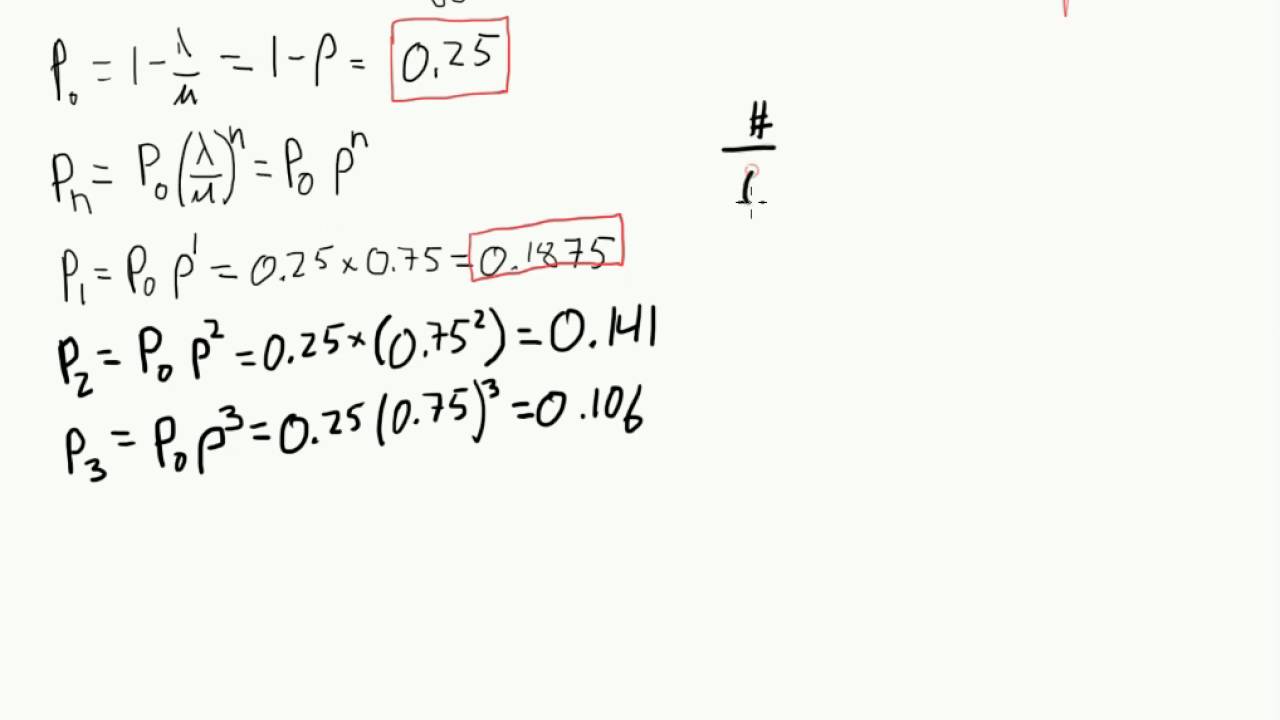 P₀ = 1 - λ/μ = 1 - ρ = 0.25
Pₙ = P₀ (λ/μ)ⁿ = P₀ ρⁿ
P₁ = P₀ ρ¹ = 0.25 × 0.75 = 0.1875
P₂ = P₀ ρ² = 0.25 × (0.75²) = 0.141
P₃ = P₀ ρ³ = 0.25 (0.75)³ = 0.106
#